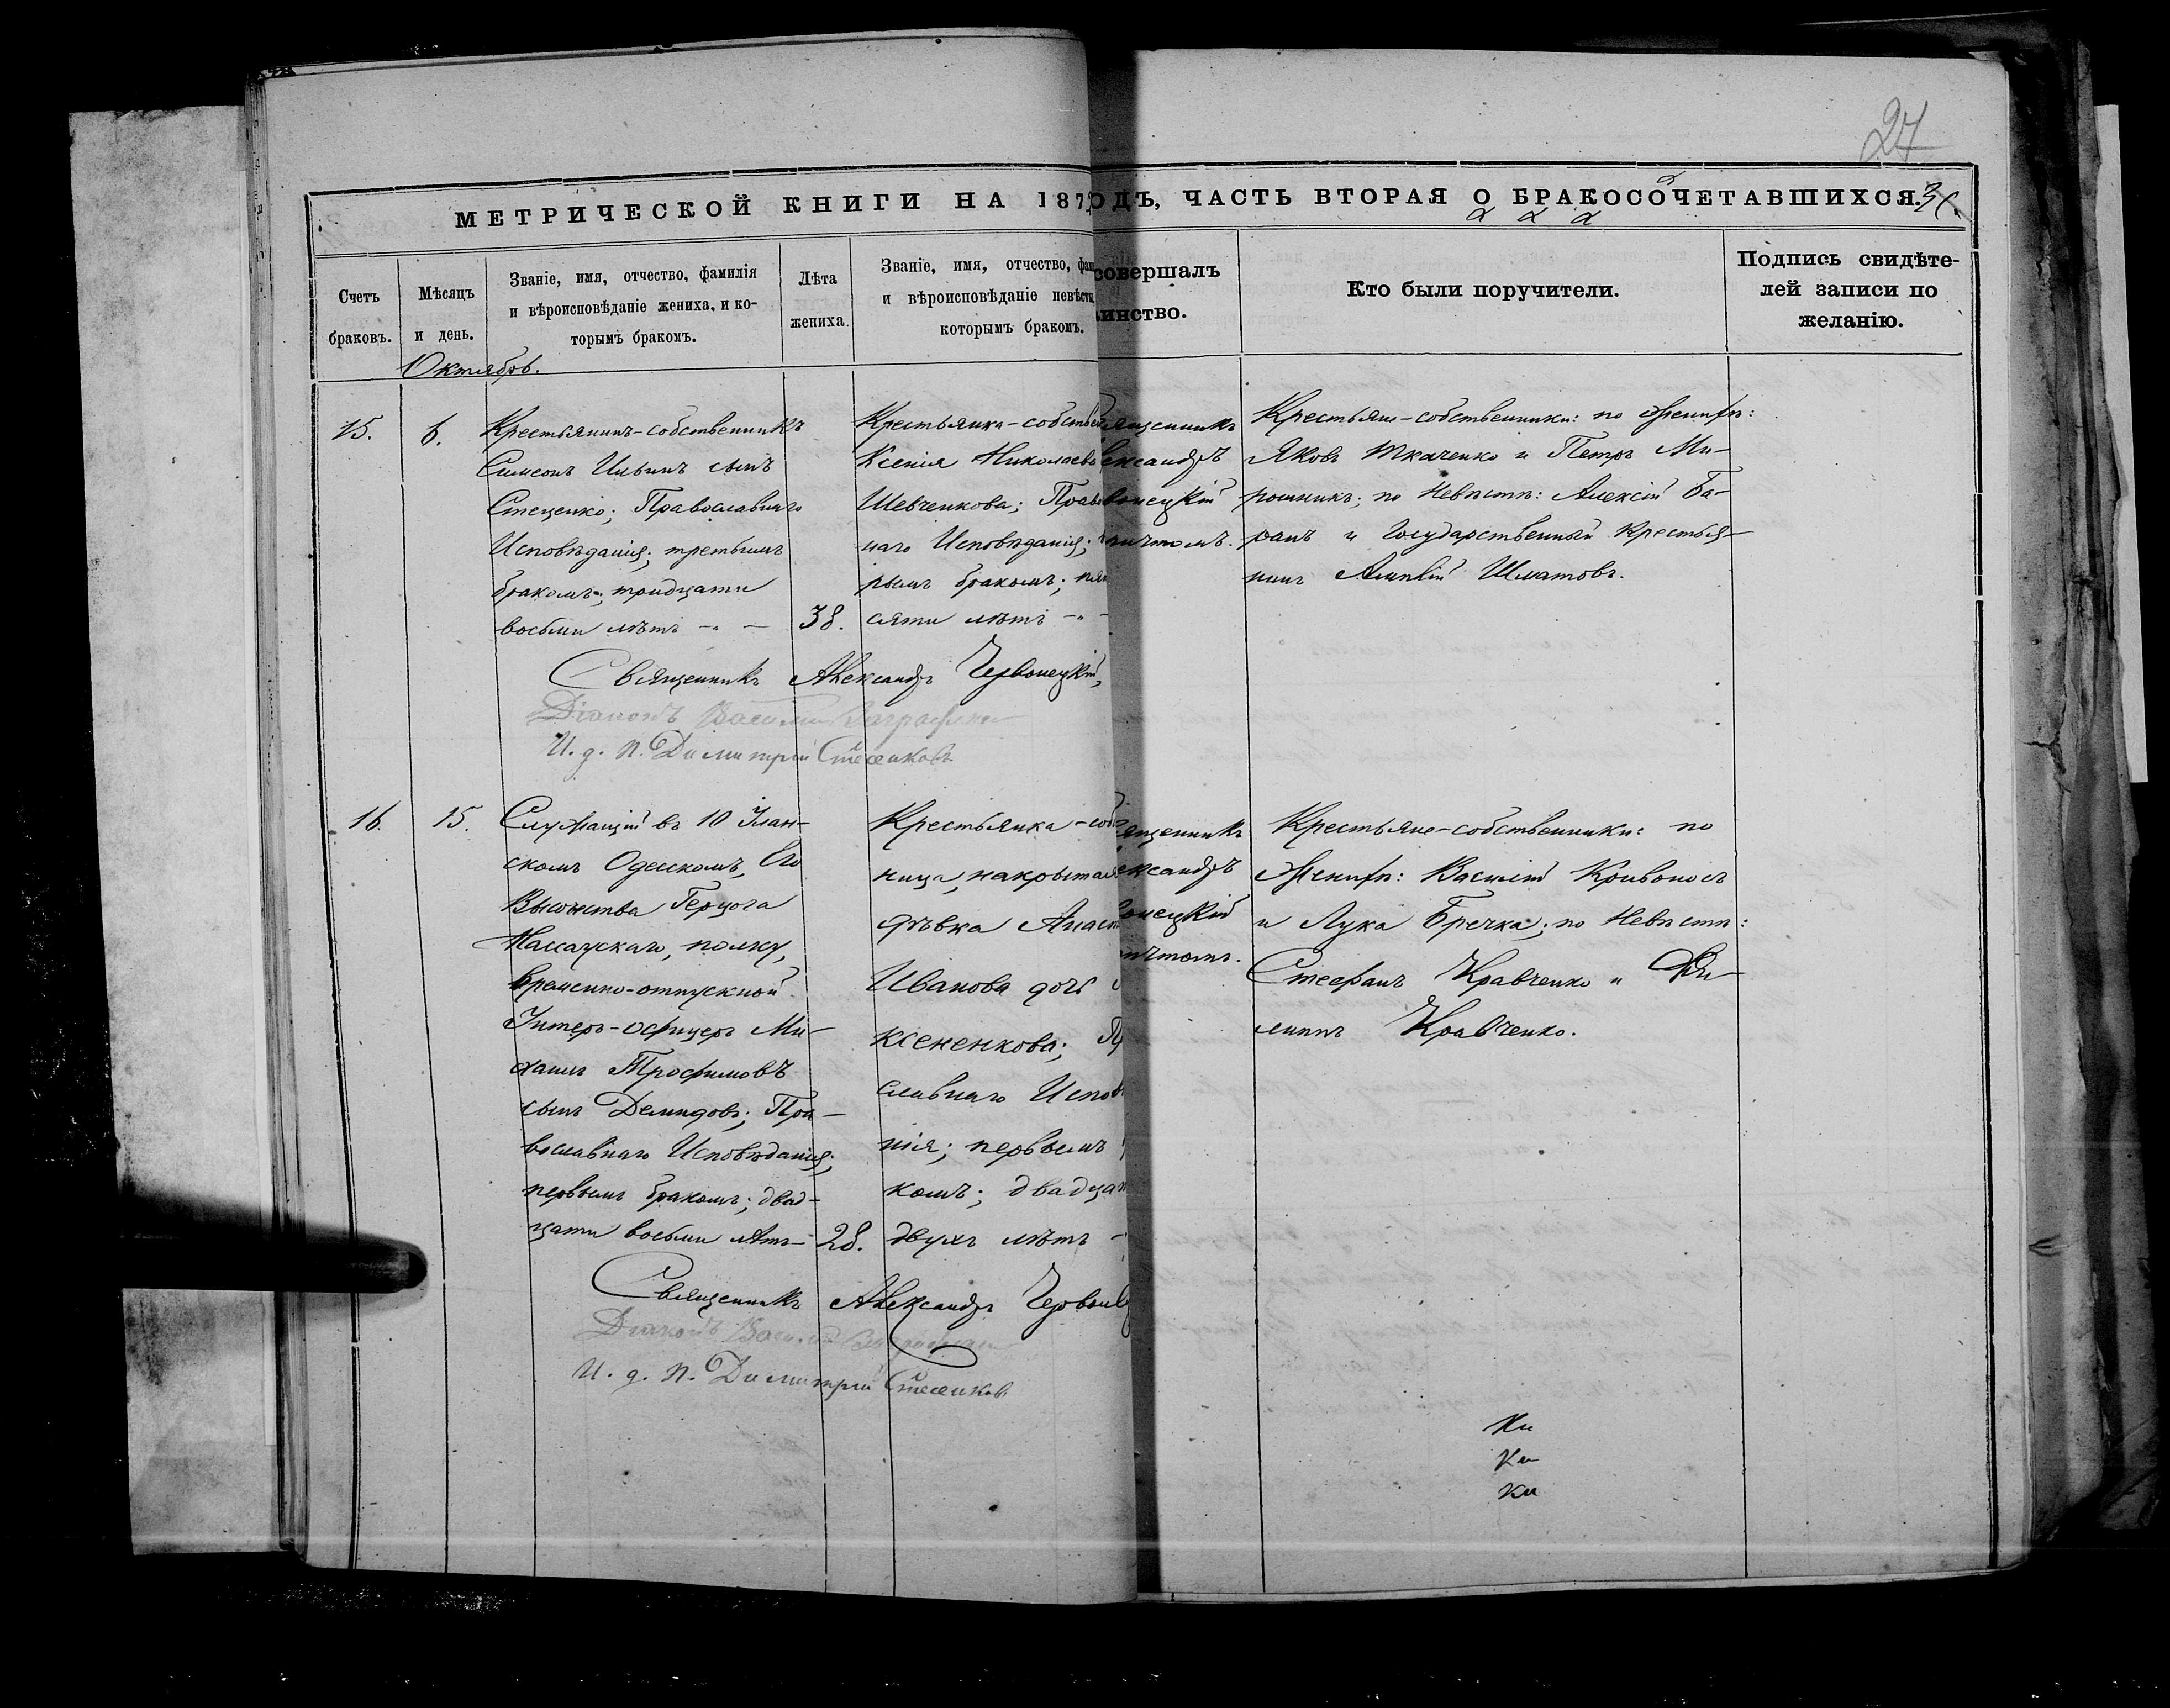 27
МЕТРИЧЕСКОЙ КНИГИ НА 187
ОДЪ, ЧАСТЬ ВТОРАЯ О БРАКОСОЧЕТАВШИХСЯ.
Счетъ
браковъ.
Мѣсяцъ
и день.
Званіе, имя, отчество, фамилія
и вѣроисповѣданіе жениха, и ко-
торымъ бракомъ.
Лѣта
жениха.
Званіе, имя, отчество, фам
и вѣроисповѣданіе невѣсты
которымъ бракомъ.
совершалъ
инство.
Кто были поручители.
Подпись свидѣте-
лей записи по
желанію.
Октябрь.
15.
6.
Крестьянинъ-собственникъ
Симеонъ Ильинъ сынъ
Стеценко; Православнаго
Исповѣданія; третьимъ
бракомъ; тридцати
восьми лѣтъ
38.
Крестьянка-собствен
Ксенія Николаева
Шевченкова; Правос
наго Исповѣданія;
рымъ бракомъ; пя
сяти лѣтъ
ященникъ
ександръ
вонецкій
ричтомъ.
Крестьяне-собственники: по Женихѣ:
Яковъ Ткаченко и Петръ Ми-
рошникъ; по Невѣстѣ: Алексій Ба-
ранъ и Государственный Крестья-
нинъ Шматовъ.
Священникъ Александръ Червонецкій,
Діаконъ Василій
И. д. п. Димитрій Стесенковъ
16.
15.
Служащій въ 10 Улан-
скомъ Одесскомъ, Его
Высочества Герцога
Нассаускаго, полку,
временно-отпускной
Унтеръ-офицеръ Ми-
хаилъ Трофимовъ
сынъ Демидовъ; Пра-
вославнаго Исповѣданія;
первымъ бракомъ; двад-
цати восьми лѣтъ
28.
Крестьянка-соб
ница, накрытая
дѣвка Анаст
Иванова дочь
ксененкова; Пр
славнаго Исповѣ
нія; первымъ
комъ; двадцат
двухъ лѣтъ
ященникъ
ександръ
онецкій
ичтомъ.
Крестьяне-собственники: по
Женихѣ: Василій Кривоносъ
и Лука Гречка; по Невѣстѣ:
Стефанъ Кравченко и Фи-
липпъ Кравченко.
Священникъ Александръ Червонец
Діаконъ Василій
И. д. п. Димитрій Стесенковъ
Ки
Ки
Ки